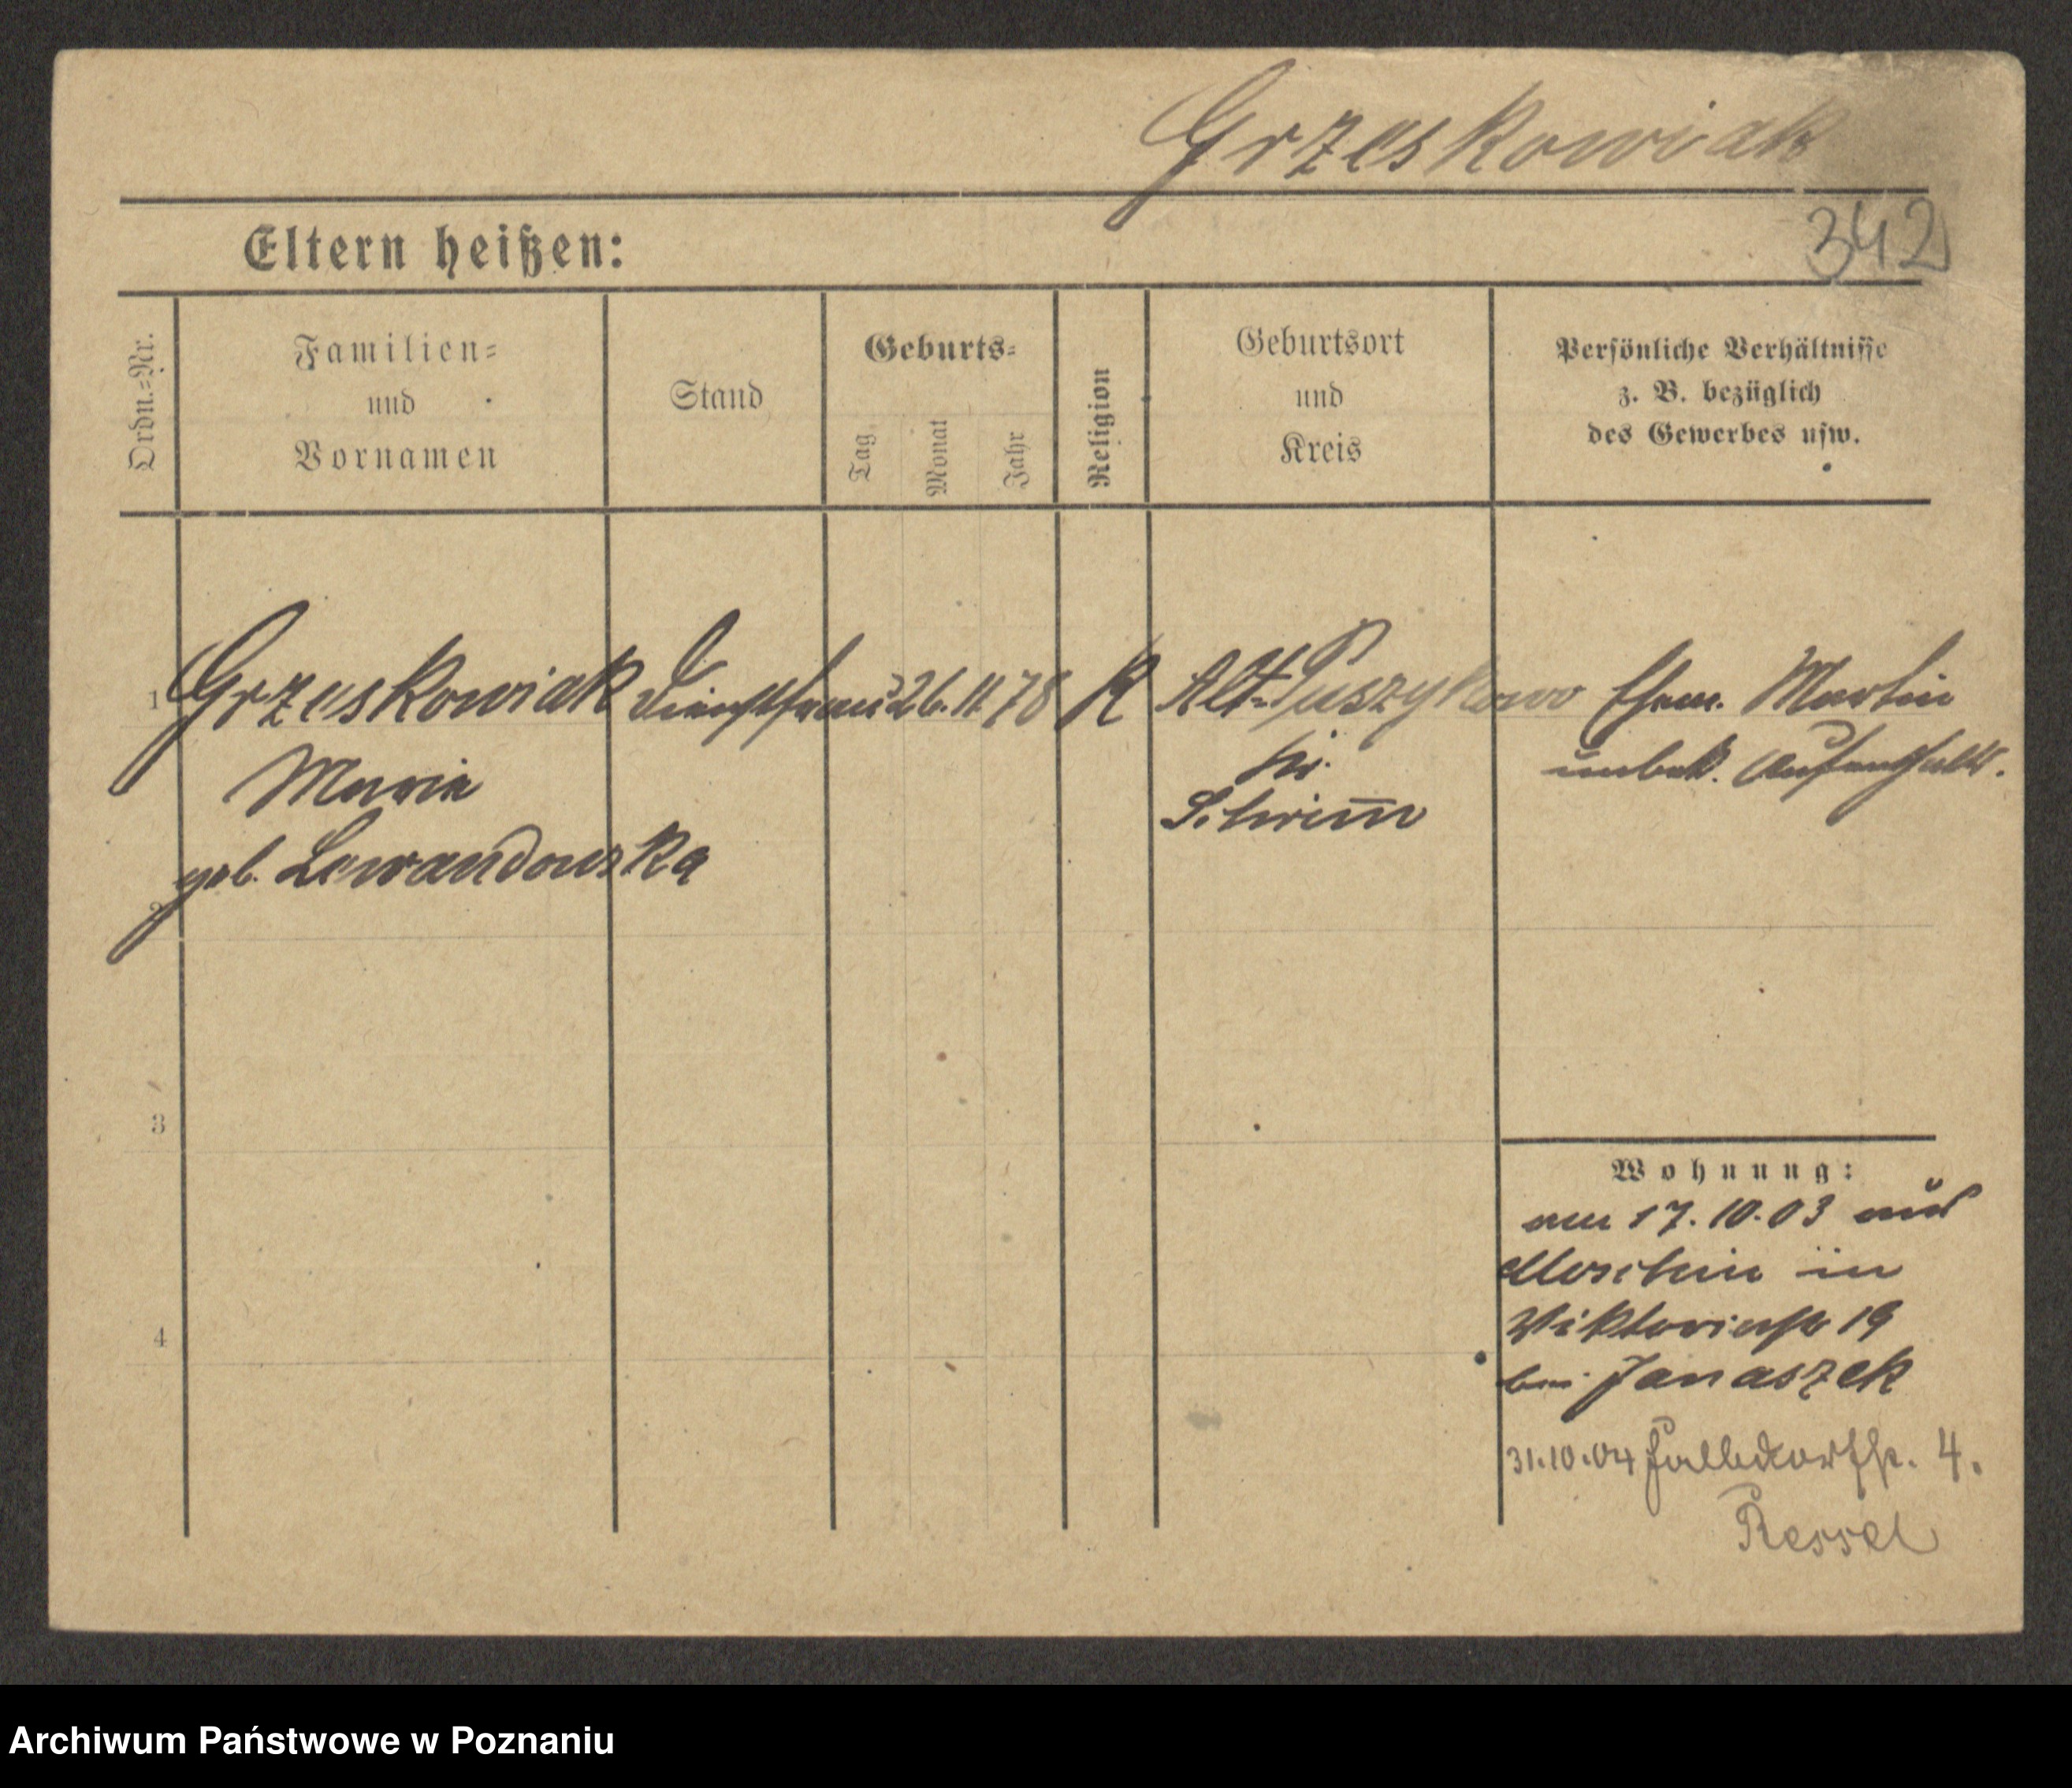 Grzeskowiak
342
Eltern heißen:
Ordn.=Nr.
Familien=
und
Vornamen
Stand
Geburts=
Tag
Monat
Jahr
Religion
Geburtsort
und
Kreis
Persönliche Verhältnisse
z. B. bezüglich
des Gewerbes usw.
1 Grzeskowiak Dienstfrau 26. 11 78 K Alt-Puszykowo Ehem. Martin
Maria Kr. unbek. Aufenthalts.
geb. Lewandowska Schrim̄
2
3
4
Wohnung:
am 17.10.03 aus
Moschin in
Viktoriastr 19
bei Janaszek
31.10.04 4.
Ressel
Archiwum Państwowe w Poznaniu